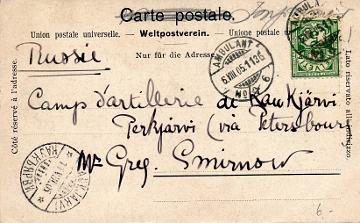 Carte postale.
Union postale universelle. — Weltpostverein. — Unione postale universale.
Nur für die Adresse.
Côté réservé à l'adresse.
Lato riservato all'
AMBULANT
6.VIII.05.11
No 6
Russie
Camp d'artillerie de Kaukjärvi
Perkjärvi (via Petersbourg
Mr Greg. Smirnow
6.-